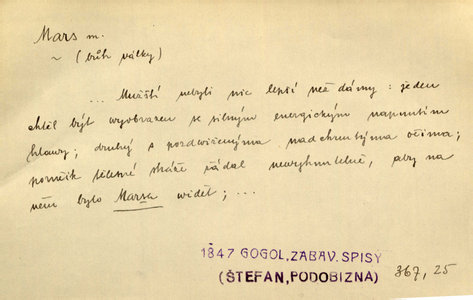 Mars m.
~ (bůh války)
... Mužští nebyli nic lepší než dámy: jeden
chtěl být vyobrazen se silným energickým napnutím
hlavy; druhý s pozdviženýma nadchnutýma očima;
poručík tělesné stráže žádal nevyhnutelně, aby na
něm bylo Marsa vidět; ...
1847 GOGOL, ZABAV. SPISY
(ŠTEFAN, PODOBIZNA) 367, 25